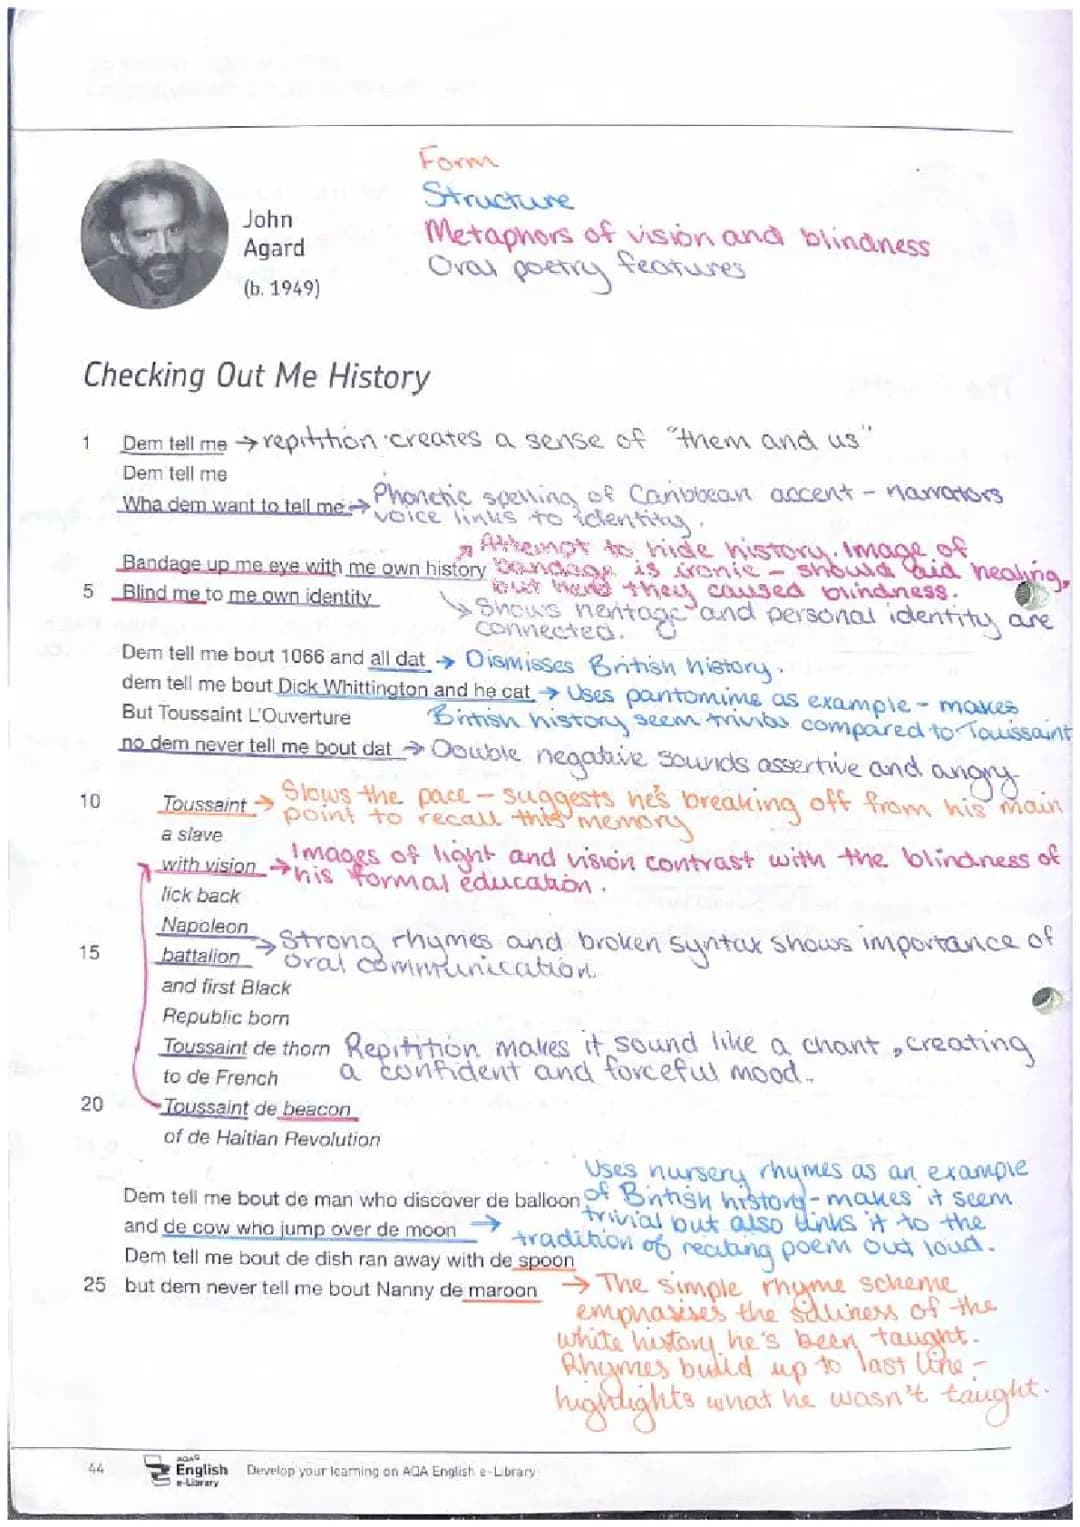 Form
Structure
Metaphors of vision and blindness
Oral poetry features
John
Agard
(b. 1949)
Checking Out Me History
1 Dem tell me → repitition creates a sense of "them and us"
Dem tell me
Wha dem want to tell me → Phonetic spelling of Caribbean accent - narrators
voice links to identity.
Attempt to hide history. Image of
Bandage up me eye with me own history bandage is ironic - should aid healing,
but here they caused blindness.
5 Blind me to me own identity
Shows heritage and personal identity are
connected.
Dem tell me bout 1066 and all dat → Dismisses British history.
dem tell me bout Dick Whittington and he cat → Uses pantomime as example - makes
But Toussaint L'Ouverture British history seem trivial compared to Touissaint
no dem never tell me bout dat → Double negative sounds assertive and angry
10 Toussaint → Slows the pace - suggests he's breaking off from his main
point to recall this memory
a slave
with vision → Images of light and vision contrast with the blindness of
his formal education.
lick back
Napoleon
→ Strong rhymes and broken syntax shows importance of
15 battalion oral communication.
and first Black
Republic born
Toussaint de thorn Repitition makes it sound like a chant, creating
to de French a confident and forceful mood..
20 Toussaint de beacon
of de Haitian Revolution
Uses nursery rhymes as an example
Dem tell me bout de man who discover de balloon of British history - makes it seem
and de cow who jump over de moon → trivial but also links it to the
tradition of reciting poem out loud.
Dem tell me bout de dish ran away with de spoon
25 but dem never tell me bout Nanny de maroon → The simple rhyme scheme
emphasises the silliness of the
white history he's been taught.
Rhymes build up to last line -
highlights what he wasn't taught.
44 AQA English e-Library Develop your learning on AQA English e-Library